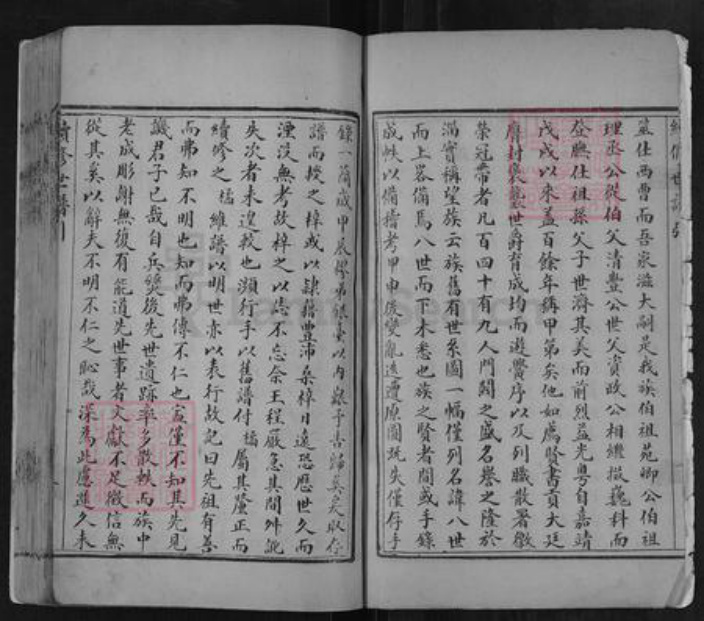 續修世譜引
筮仕西曹而吾家滋大嗣是我族伯祖苑卿公伯祖
理丞公從伯父清豐公世父資政公相繼掇巍科而
登膴仕祖孫父子世濟其美而前烈益光粤自嘉靖
戊戌以來蓋百餘年稱甲第矣他如薦賢書貢大廷
膺封襲蔭世爵育成均而遊黌序以及列職散署徼
榮冠帶者凡百四十有九人門閥之盛名譽之隆於
濶實稱望族云族舊有世系圖一幅僅列名諱八世
而上畧備焉八世而下未悉也族之賢者間或手錄
成帙以備稽考甲申後變亂迭遭原圖既失僅存手
錄一篇歲甲辰 弟銀臺以內艱予告歸里矣取存
譜而授之梓或以隸籍豐沛桑梓日遠恐歷世久而
湮沒無考故梓之以志不忘余王程嚴急其間舛訛
失次者未遑較也瀕行手以舊譜付 屬其釐正而
續修之 維譜以明世亦以表行故記曰先祖有善
而弗知不明也知而弗傳不仁也 僅不知其先見
譏君子已哉自兵燹後先世遺跡率多散軼而族中
老成彫謝無復有能道先世事者文獻不足徵信無
從其奚以辭夫不明不仁之恥哉深為此慮遲久未
續修世譜引